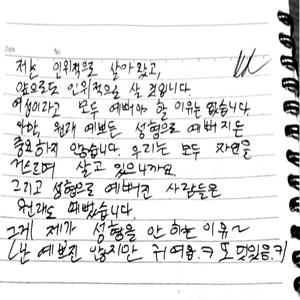 Date No
저는 인위적으로 살아왔고,
앞으로도 인위적으로 살 것입니다.
여성이라고 모두 예뻐야 할 이유는 없습니다.
하지만, 원래 예쁘든 성형으로 예뻐지든
중요하지 않습니다. 우리는 모두 자연을
거스르며 살고 있으니까요.
그리고 성형으로 예뻐진 사람들은
원래도 예뻤습니다.
그게 제가 성형을 안 하는 이유~
(난 예쁘진 않지만 귀여움.ㅋ 또 멋있음.ㅋ)